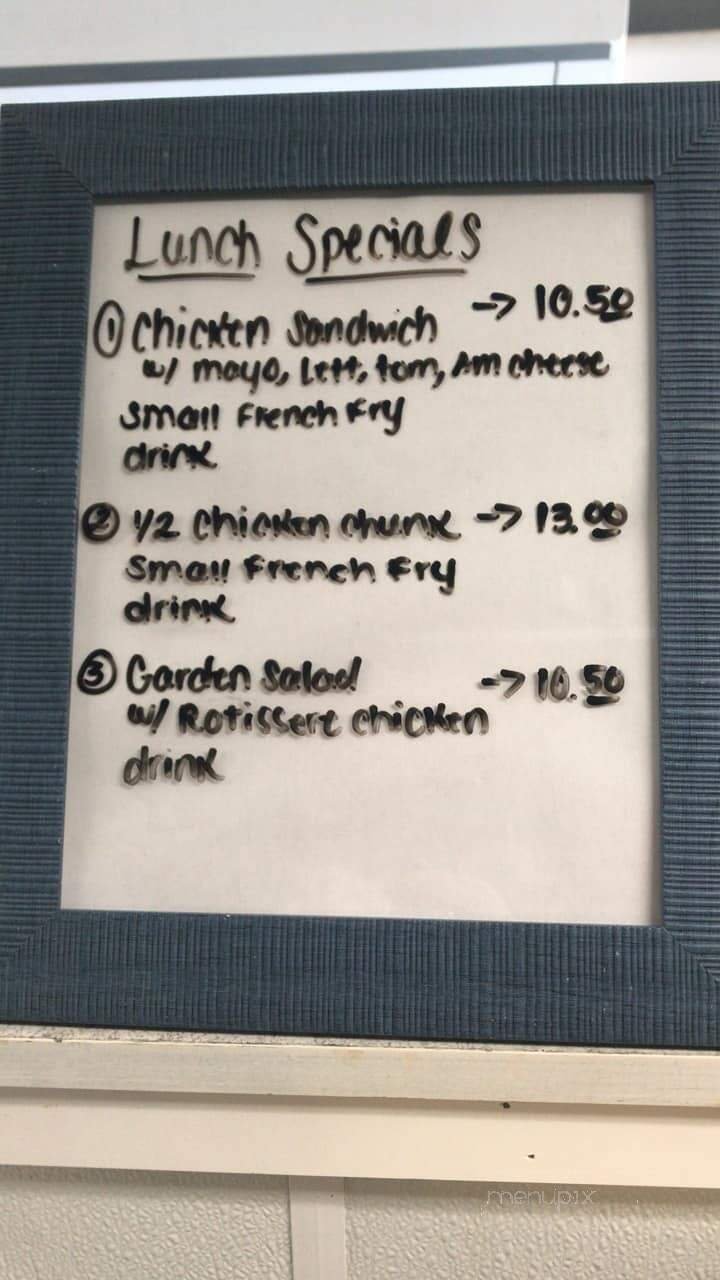 Lunch Specials
① Chicken Sandwich -> 10.50
w/ mayo, Lett, tom, Am cheese
Small French Fry
drink
② 1/2 Chicken chunk -> 13.00
Small French Fry
drink
③ Garden Salad -> 10.50
w/ Rotissere chicken
drink
menupix